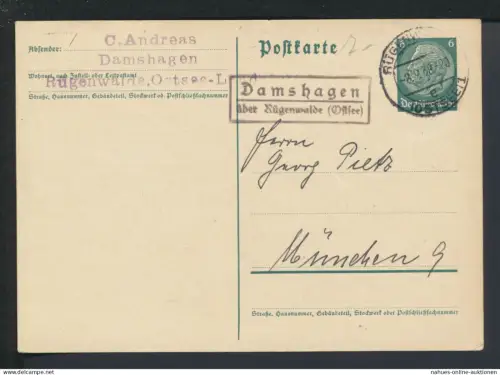 Absender:
C. Andreas
Damshagen
Wohnort, auch Zustell- oder Leitpostamt
Rügenwalde, Ostsee-L
Straße, Hausnummer, Gebäudeteil, Stockwerk od. Postschließfachnummer
Postkarte
6
Damshagen
über Rügenwalde (Ostsee)
Herrn
Georg Pietz
München 9
Straße, Hausnummer, Gebäudeteil, Stockwerk oder Postschließfachnummer
www.delcampe.net
nahues-online-auctions.com